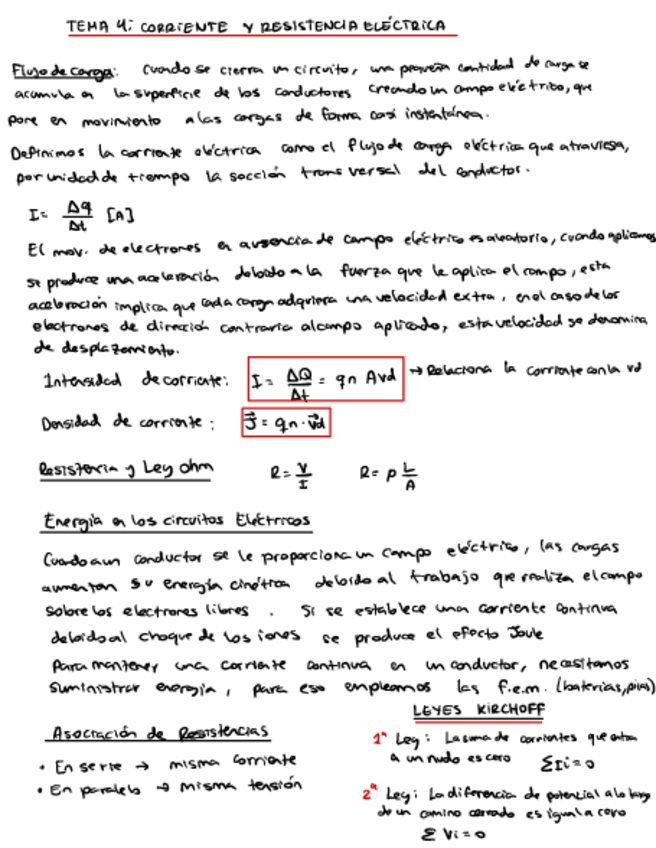 TEMA 4: CORRIENTE Y RESISTENCIA ELÉCTRICA
Flujo de carga: Cuando se cierra un circuito, una pequeña cantidad de carga se
acumula en la superficie de los conductores creando un campo eléctrico, que
pone en movimiento a las cargas de forma casi instantánea.
Definimos la corriente eléctrica como el flujo de carga eléctrica que atraviesa,
por unidad de tiempo la sección transversal del conductor.
I = Δq/Δt [A]
El mov. de electrones en ausencia de campo eléctrico es aleatorio, cuando aplicamos
se produce una aceleración debido a la fuerza que le aplica el campo, esta
aceleración implica que cada carga adquiera una velocidad extra, en el caso de los
electrones de dirección contraria al campo aplicado, esta velocidad se denomina
de desplazamiento.
Intensidad de corriente: I = ΔQ/Δt = qn Avd → Relaciona la corriente con la vd
Densidad de corriente: J⃗ = qn · v⃗d
Resistencia y Ley ohm R = V/I R = ρ L/A
Energía en los circuitos Eléctricos
Cuando a un conductor se le proporciona un campo eléctrico, las cargas
aumentan su energía cinética debido al trabajo que realiza el campo
sobre los electrones libres. Si se establece una corriente continua
debido al choque de los iones se produce el efecto Joule
Para mantener una corriente continua en un conductor, necesitamos
suministrar energía, para eso empleamos las f.e.m. (baterías, pilas)
Asociación de Resistencias
• En serie → misma corriente
• En paralelo → misma tensión
LEYES KIRCHOFF
1ª Ley: La suma de corrientes que entra
a un nudo es cero ΣIi = 0
2ª Ley: La diferencia de potencial a lo largo
de un camino cerrado es igual a cero
Σ Vi = 0